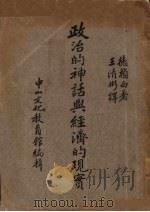 德頼西著
王清彬譯
政治的神話與經濟的現實
中山文化教育館編輯